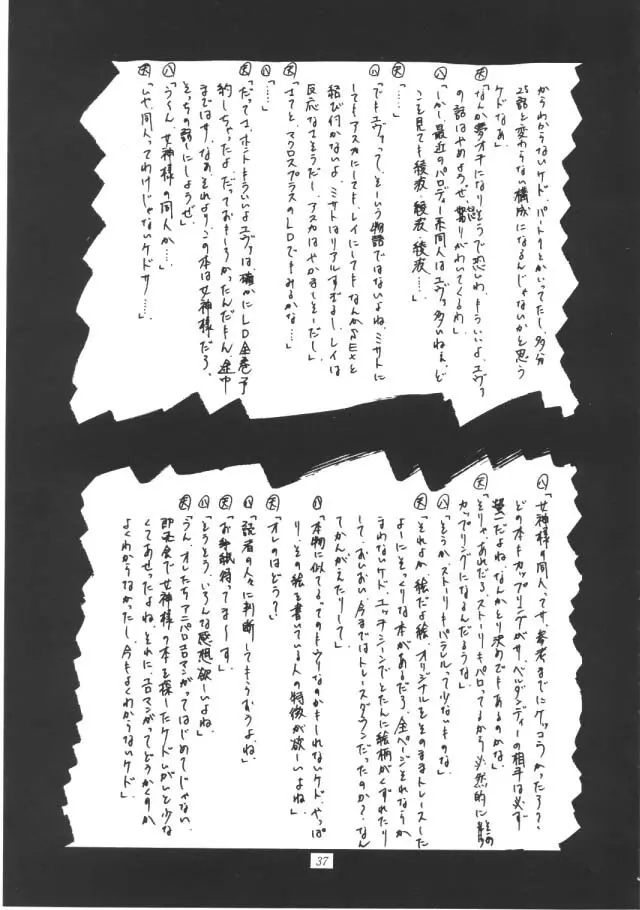 かうわからないケド、パート2とかいってたし、多分
25話と変わらない構成になるんじゃないかと思う
ケドなぁ」
天「なんか夢オチになりそうで恐いわ、もういいよ、エヴァ
の話はやめようぜ、怒りがわいてくるわ」
八「しかし最近のパロディー系同人はエヴァ多いねぇ、ど
こを見ても綾波、綾波、綾波……」
天「……」
八「でもエヴァって、そーいう物語ではないよね、ミサトに
してもアスカにしても、レイにしてもなんかSEXと
結び付かないよ、ミサトはリアルすぎるし、レイは
反応なさそうだし、アスカはやかましそーだし」
天「さてと、マクロスプラスのLDでもみるかな……」
八「……」
天「だってさ、ホントもういいよエヴァは、確かにLD全巻予
約しちゃったよ、だっておもしろかったんだもん、途中
まではサ、なぁ、それよりこの本は女神様だろ、
そっちの話にしようぜ」
八「うーん、女神様の同人か……」
天「いや、同人ってわけじゃないケドサ……」
八「女神様の同人ってサ、参考までにケッコうかったろ?、
どの本もカップリングがサ、ベルダンディーの相手は必ず
螢一だよね、なんかとり決めでもあるのかな」
天「そりゃあれだろ、ストーリーもパロってるから必然的にその
カップリングになるんだろうな」
八「そうか、ストーリーもパラレルって少ないものな」
天「それよか絵だよ絵、オリジナルをそのままトレースした
よーにそっくりな本があるだろ、全ページそれならか
まわないケド、エッチシーンでとたんに絵柄がくずれたり
して、おいおい、今まではトレースダウンだったのか?、なん
てかんがえたりして」
八「本物に似てるってのもウリなのかもしれないケド、やっぱ
り、その絵を書いている人の特徴が欲ーいよね」
天「オレのはどう?」
八「読者の人々に判断してもらおうよね」
天「お手紙待ってま〜す」
八「そうそう、いろんな感想欲ーいよね」
天「うん、オレたちアニパロエロマンガってはじめてじゃない、
即売会で女神様の本を探したケド、いがいと少な
くてあせったよね、それにエロマンガってどうかくのか
よくわからなかったし、今もよくわからないケド」
37